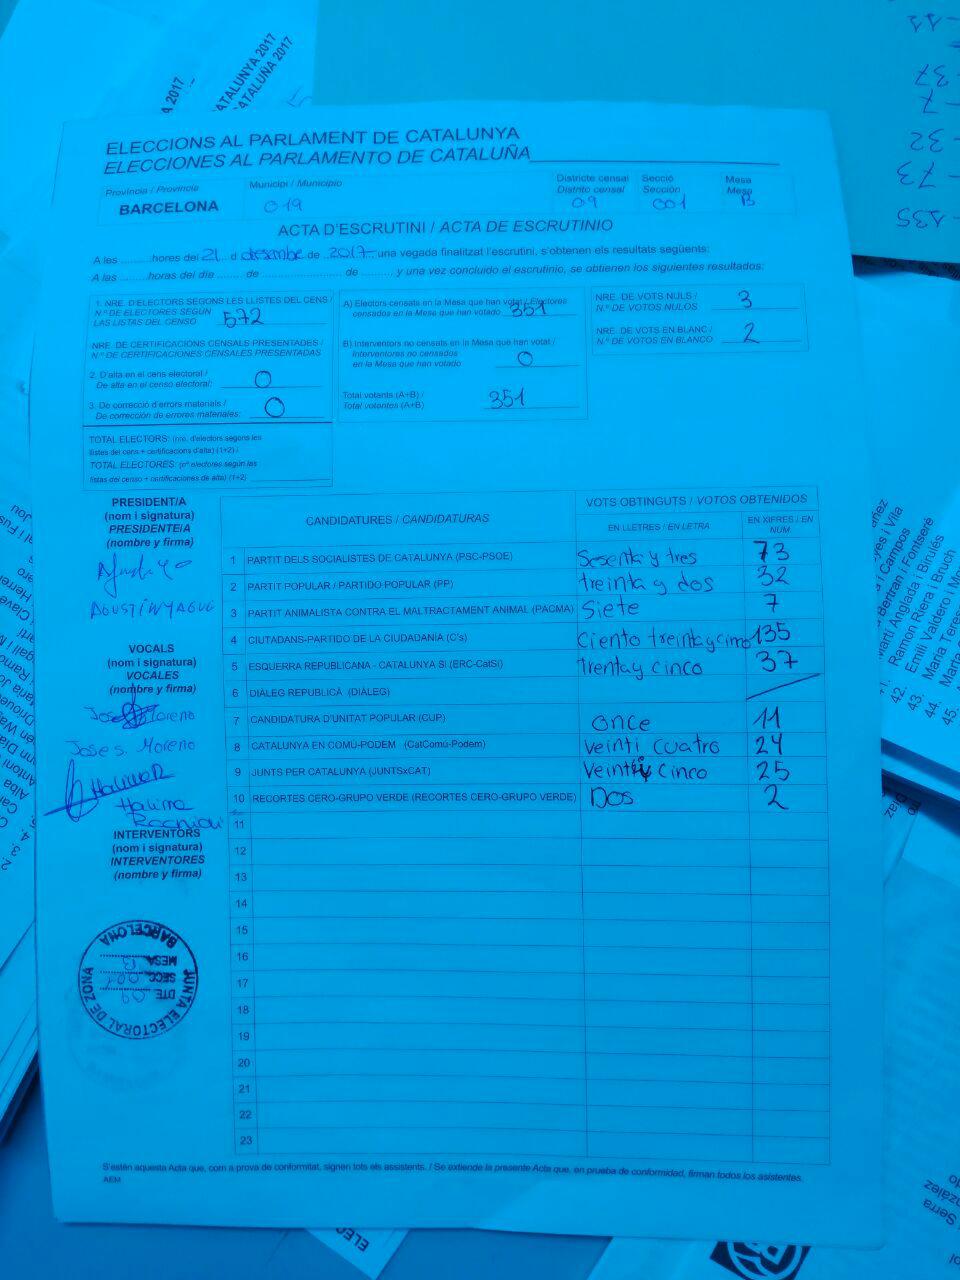 CATALUNYA 2017
CATALUÑA 2017
A 2017
- 37
- 7
- 32
- 73
- 135
ELECCIONS AL PARLAMENT DE CATALUNYA
ELECCIONES AL PARLAMENTO DE CATALUÑA
Província / Provincia
BARCELONA
Municipi / Municipio
019
Districte censal
Distrito censal
09
Secció
Sección
001
Mesa
Mesa
B
ACTA D'ESCRUTINI / ACTA DE ESCRUTINIO
A les ........ hores del 21 d desembre de 2017 una vegada finalitzat l'escrutini, s'obtenen els resultats següents:
A las ........ horas del día ...... de ........................ de ........ y una vez concluido el escrutinio, se obtienen los siguientes resultados:
1. NRE. D'ELECTORS SEGONS LES LLISTES DEL CENS /
N.º DE ELECTORES SEGÚN
LAS LISTAS DEL CENSO 572
NRE. DE CERTIFICACIONS CENSALS PRESENTADES /
N.º DE CERTIFICACIONES CENSALES PRESENTADAS
2. D'alta en el cens electoral /
De alta en el censo electoral: 0
3. De correcció d'errors materials /
De corrección de errores materiales: 0
TOTAL ELECTORS: (nre. d'electors segons les
llistes del cens + certificacions d'alta) (1+2) /
TOTAL ELECTORES: (nº electores según las
listas del censo + certificaciones de alta) (1+2)
A) Electors censats en la Mesa que han votat / Electores
censados en la Mesa que han votado 351
B) Interventors no censats en la Mesa que han votat /
Interventores no censados
en la Mesa que han votado 0
Total votants (A+B) /
Total votantes (A+B) 351
NRE. DE VOTS NULS /
N.º DE VOTOS NULOS 3
NRE. DE VOTS EN BLANC /
N.º DE VOTOS EN BLANCO 2
PRESIDENT/A
(nom i signatura)
PRESIDENTE/A
(nombre y firma)
AGUSTIN YAGUE
VOCALS
(nom i signatura)
VOCALES
(nombre y firma)
Moreno
Jose S. Moreno
Halima
INTERVENTORS
(nom i signatura)
INTERVENTORES
(nombre y firma)
JUNTA ELECTORAL DE ZONA
BARCELONA
DTE. 09
SECC. 001
MESA B
CANDIDATURES / CANDIDATURAS
VOTS OBTINGUTS / VOTOS OBTENIDOS
EN LLETRES / EN LETRA
EN XIFRES / EN NÚM.
1 PARTIT DELS SOCIALISTES DE CATALUNYA (PSC-PSOE) Sesenta y tres 73
2 PARTIT POPULAR / PARTIDO POPULAR (PP) treinta y dos 32
3 PARTIT ANIMALISTA CONTRA EL MALTRACTAMENT ANIMAL (PACMA) Siete 7
4 CIUTADANS-PARTIDO DE LA CIUDADANÍA (C's) Ciento treinta y cinco 135
5 ESQUERRA REPUBLICANA - CATALUNYA SÍ (ERC-CatSí) trenta y cinco 37
6 DIÀLEG REPUBLICÀ (DIÀLEG)
7 CANDIDATURA D'UNITAT POPULAR (CUP) once 11
8 CATALUNYA EN COMÚ-PODEM (CatComú-Podem) veinti cuatro 24
9 JUNTS PER CATALUNYA (JUNTSxCAT) Veinti cinco 25
10 RECORTES CERO-GRUPO VERDE (RECORTES CERO-GRUPO VERDE) Dos 2
11
12
13
14
15
16
17
18
19
20
21
22
23
S'estén aquesta Acta que, com a prova de conformitat, signen tots els assistents. / Se extiende la presente Acta que, en prueba de conformidad, firman todos los asistentes.
AEM
Bertran i Fontseré
Martí Anglada i Birulés
Ramon Riera i Bruch
42. Emili Valdero i
43. María Teres
44. Marta
45.
Serra